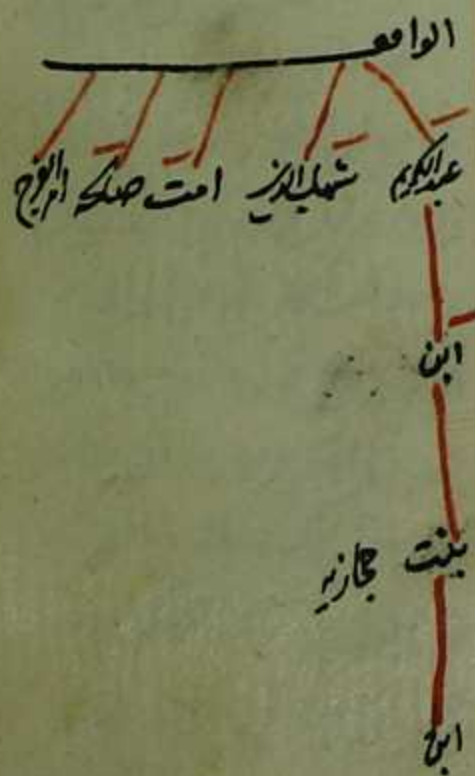 الواقف
عبدالكريم شهاب الدين امت صالحه ام الفرج
ابن
بنت حجازيه
ابن